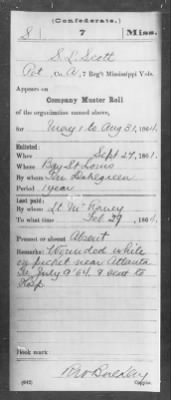 (Confederate.)
S 7 Miss.
S. L. Scott
Pvt, Co. A, 7 Reg't Mississippi Vols.
Appears on
Company Muster Roll
of the organization named above,
for May 1 to Aug 31, 1864.
Enlisted:
When Sept 29, 1861.
Where Bay St Louis
By whom
Period 1 year
Last paid:
By whom Lt.
To what time Feb 29, 1864.
Present or absent Absent
Remarks: Wounded while
on picket near Atlanta
Ga July 9" 64. & sent to
Hosp
Book mark:
(642) Copyist.